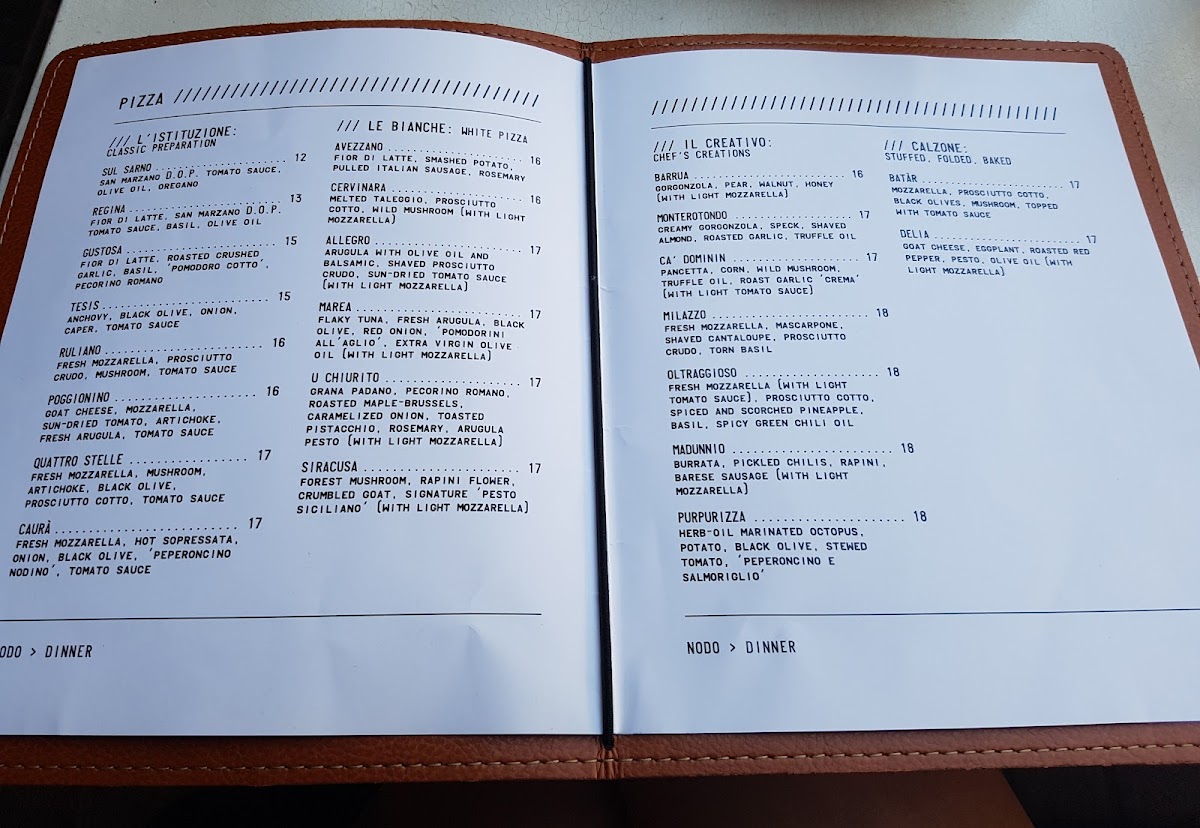 PIZZA ////////////////////////////////////////
/// L'ISTITUZIONE:
CLASSIC PREPARATION
SUL SARNO ........................ 12
SAN MARZANO D.O.P. TOMATO SAUCE,
OLIVE OIL, OREGANO
REGINA ........................... 13
FIOR DI LATTE, SAN MARZANO D.O.P.
TOMATO SAUCE, BASIL, OLIVE OIL
GUSTOSA .......................... 15
FIOR DI LATTE, ROASTED CRUSHED
GARLIC, BASIL, 'POMODORO COTTO',
PECORINO ROMANO
TESIS ............................ 15
ANCHOVY, BLACK OLIVE, ONION,
CAPER, TOMATO SAUCE
RULIANO .......................... 16
FRESH MOZZARELLA, PROSCIUTTO
CRUDO, MUSHROOM, TOMATO SAUCE
POGGIONINO ....................... 16
GOAT CHEESE, MOZZARELLA,
SUN-DRIED TOMATO, ARTICHOKE,
FRESH ARUGULA, TOMATO SAUCE
QUATTRO STELLE ................... 17
FRESH MOZZARELLA, MUSHROOM,
ARTICHOKE, BLACK OLIVE,
PROSCIUTTO COTTO, TOMATO SAUCE
CAURÀ ............................ 17
FRESH MOZZARELLA, HOT SOPRESSATA,
ONION, BLACK OLIVE, 'PEPERONCINO
NODINO', TOMATO SAUCE
/// LE BIANCHE: WHITE PIZZA
AVEZZANO ......................... 16
FIOR DI LATTE, SMASHED POTATO,
PULLED ITALIAN SAUSAGE, ROSEMARY
CERVINARA ........................ 16
MELTED TALEGGIO, PROSCIUTTO
COTTO, WILD MUSHROOM (WITH LIGHT
MOZZARELLA)
ALLEGRO .......................... 17
ARUGULA WITH OLIVE OIL AND
BALSAMIC, SHAVED PROSCIUTTO
CRUDO, SUN-DRIED TOMATO SAUCE
(WITH LIGHT MOZZARELLA)
MAREA ............................ 17
FLAKY TUNA, FRESH ARUGULA, BLACK
OLIVE, RED ONION, 'POMODORINI
ALL'AGLIO', EXTRA VIRGIN OLIVE
OIL (WITH LIGHT MOZZARELLA)
U CHIURITO ....................... 17
GRANA PADANO, PECORINO ROMANO,
ROASTED MAPLE-BRUSSELS,
CARAMELIZED ONION, TOASTED
PISTACCHIO, ROSEMARY, ARUGULA
PESTO (WITH LIGHT MOZZARELLA)
SIRACUSA ......................... 17
FOREST MUSHROOM, RAPINI FLOWER,
CRUMBLED GOAT, SIGNATURE 'PESTO
SICILIANO' (WITH LIGHT MOZZARELLA)
ODO > DINNER
////////////////////////////////////////////
/// IL CREATIVO:
CHEF'S CREATIONS
BARRUA ........................... 16
GORGONZOLA, PEAR, WALNUT, HONEY
(WITH LIGHT MOZZARELLA)
MONTEROTONDO ..................... 17
CREAMY GORGONZOLA, SPECK, SHAVED
ALMOND, ROASTED GARLIC, TRUFFLE OIL
CA' DOMININ ...................... 17
PANCETTA, CORN, WILD MUSHROOM,
TRUFFLE OIL, ROAST GARLIC 'CREMA'
(WITH LIGHT TOMATO SAUCE)
MILAZZO .......................... 18
FRESH MOZZARELLA, MASCARPONE,
SHAVED CANTALOUPE, PROSCIUTTO
CRUDO, TORN BASIL
OLTRAGGIOSO ...................... 18
FRESH MOZZARELLA (WITH LIGHT
TOMATO SAUCE), PROSCIUTTO COTTO,
SPICED AND SCORCHED PINEAPPLE,
BASIL, SPICY GREEN CHILI OIL
MADUNNIO ......................... 18
BURRATA, PICKLED CHILIS, RAPINI,
BARESE SAUSAGE (WITH LIGHT
MOZZARELLA)
PURPURIZZA ....................... 18
HERB-OIL MARINATED OCTOPUS,
POTATO, BLACK OLIVE, STEWED
TOMATO, 'PEPERONCINO E
SALMORIGLIO'
/// CALZONE:
STUFFED, FOLDED, BAKED
BATÀR ............................ 17
MOZZARELLA, PROSCIUTTO COTTO,
BLACK OLIVES, MUSHROOM, TOPPED
WITH TOMATO SAUCE
DELIA ............................ 17
GOAT CHEESE, EGGPLANT, ROASTED RED
PEPPER, PESTO, OLIVE OIL (WITH
LIGHT MOZZARELLA)
NODO > DINNER